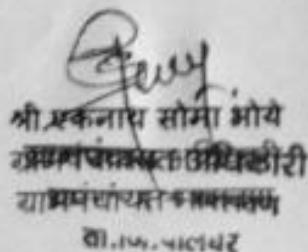 श्री. एकनाथ सोमा भोये
ग्रामपंचायत अधिकारी
ग्रामपंचायत
ता.जि. पालघर